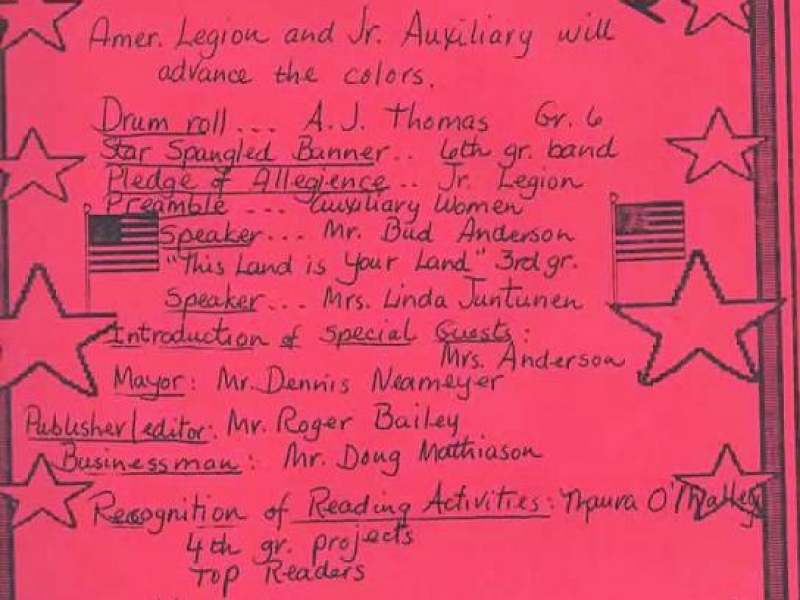 Amer. Legion and Jr. Auxiliary will
advance the colors.
Drum roll... A.J. Thomas Gr. 6
Star Spangled Banner.. 6th gr. band
Pledge of Allegience.. Jr. Legion
Preamble ... Auxiliary Women
Speaker... Mr. Bud Anderson
"This Land is Your Land" 3rd gr.
Speaker... Mrs. Linda Juntunen
Introduction of Special Guests:
Mrs. Anderson
Mayor: Mr. Dennis Neameyer
Publisher/editor: Mr. Roger Bailey
Businessman: Mr. Doug Mathiason
Recognition of Reading Activities: O'Malley
4th gr. projects
Top Readers